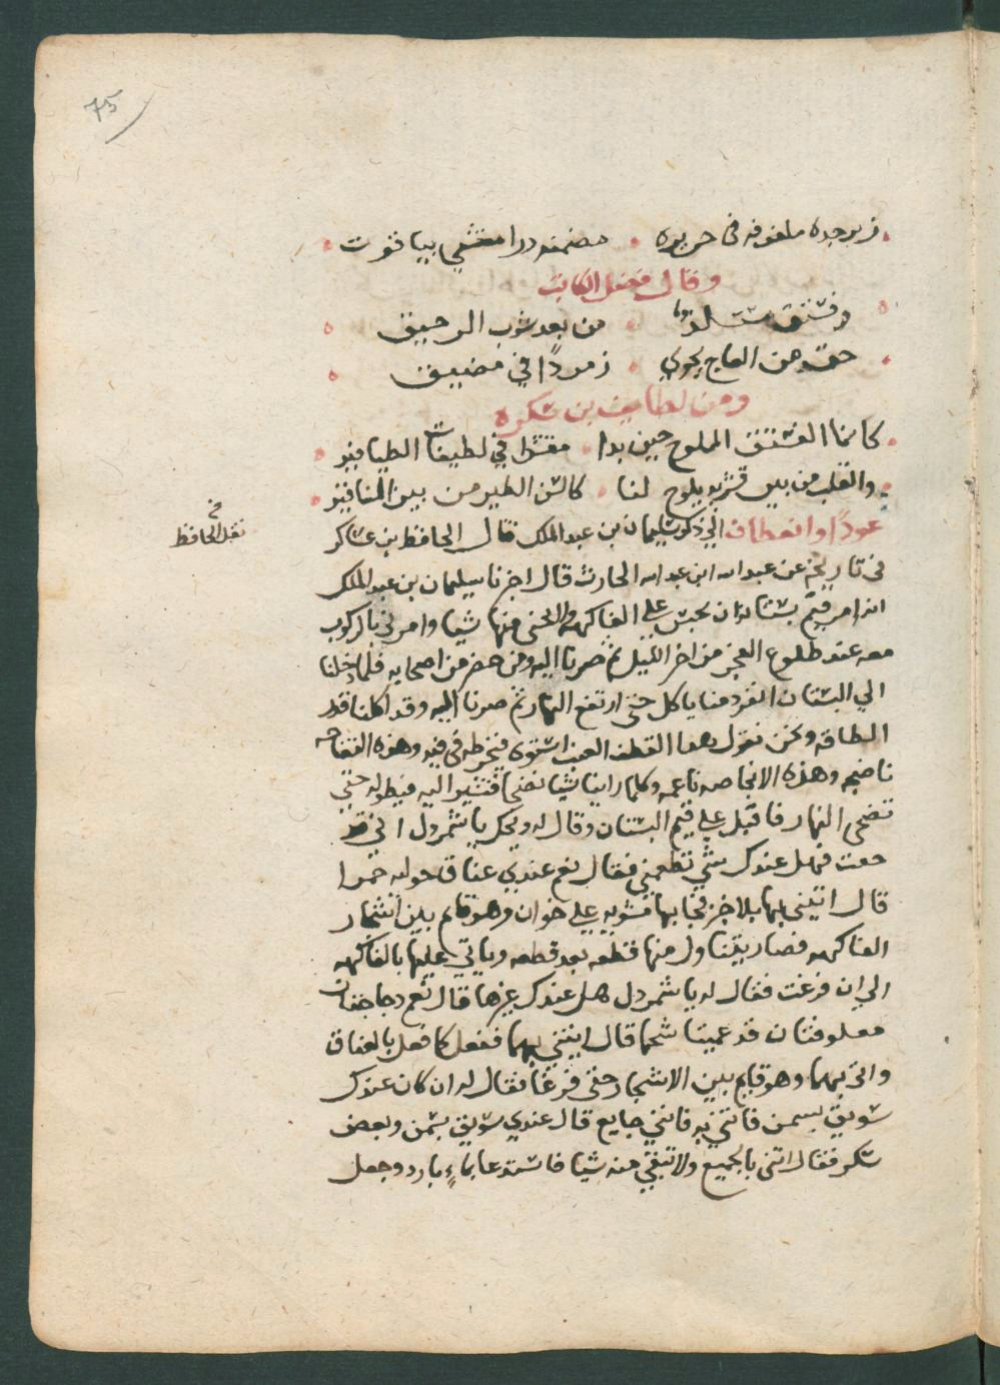 75
زبرجدة ملفوفة في حريره • مضمنه درا مغشي بياقوت
وقال فضل الكاتب
وفستق • من بعد شرب الرحيق
حق من العاج يحوي • زمردًا في مضيق
ومن لطايف بن شكره
كانما الفستق المملوح حين بدا • مقشرا في لطيفات الطيافير
والقلب من بين قشريه يلوح لنا • كالسن الطير من بين المناقير
عودًا وانعطاف الي ذكر سليمان بن عبد الملك قال الحافظ بن عساكر
نقل الحافظ
في تاريخه عن عبد الله ابن عبد الله الحارث قال اخبرنا سليمان بن عبد الملك
انه امر قيم بستانه ان يحبس علي الفاكهه ولا يجنى منها شيا وامرني بالركوب
معه عند طلوع الفجر من اخر الليل ثم صرنا اليه ومن حضر من اصحابه فلما دخلنا
الي البستان انفرد منا ياكل حتى ارتفع النهار ثم صرنا اليه وقد اكلنا قدر
الطاقه ونحن نقول هذا القطف العنب استوى فيخرطه في فيه وهذه التفاحه
ناضجه وهذه الانجاصه ناعمه وكلما راينا شيا نضجا فنشير اليه فيطوله حتي
تضحى النهار فاقبل علي قيم البستان وقال له ويحك يا شمردل اني قد
جعت فهل عندك شي تطعمني فقال نعم عندي عناق حوليه حمرا
قال اتيني بها بلا خبز فجا بها مشويه علي خوان وهو قايم بين اشجار
الفاكهه فصار يتناول منها قطعه بعد قطعه وياتي عليها بالفاكهه
الي ان فرغت فقال له يا شمردل هل عندك غيرها قال نعم دجاجتان
معلوفتان قد عميتا شحما قال ايتني بهما ففعل كما فعل بالعناق
واتى بهما وهو قايم بين الاشجار حتى فرغا فقال له ان كان عندك
سويق بسمن فاتني به فانني جايع قال عندي سويق بسمن وبعض
سكر فقال اتنى بالجميع ولا تبقي منه شيا فاستدعا بماءٍ بارد وجعل